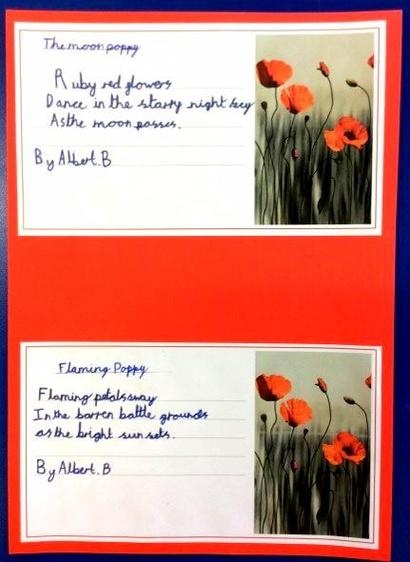 The moon poppy
Ruby red flowers
Dance in the starry night sky
As the moon passes.
By Albert.B
Flaming Poppy
Flaming petals sway
In the barren battle grounds
as the bright sun sets.
By Albert.B